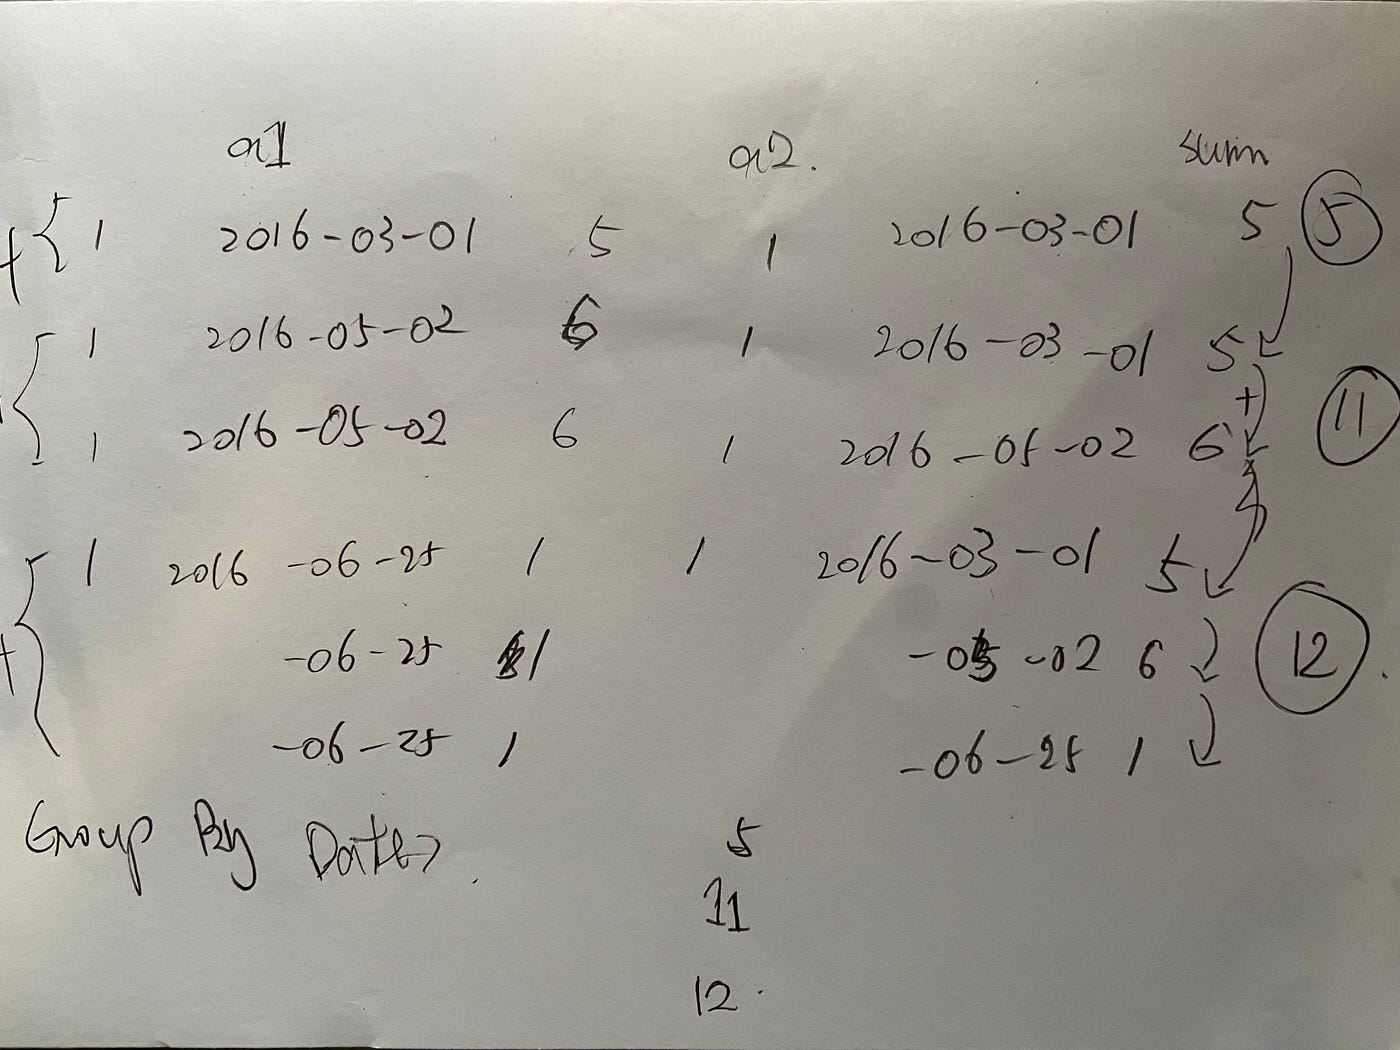 a1 a2. sum
1 2016-03-01 5 1 2016-03-01 5 5
1 2016-05-02 6 1 2016-03-01 5
+ 11
1 2016-05-02 6 1 2016-05-02 6
1 2016-06-25 1 1 2016-03-01 5
-06-25 1 -05-02 6 12.
-06-25 1 -06-25 1
Group By Date,
5
11
12.